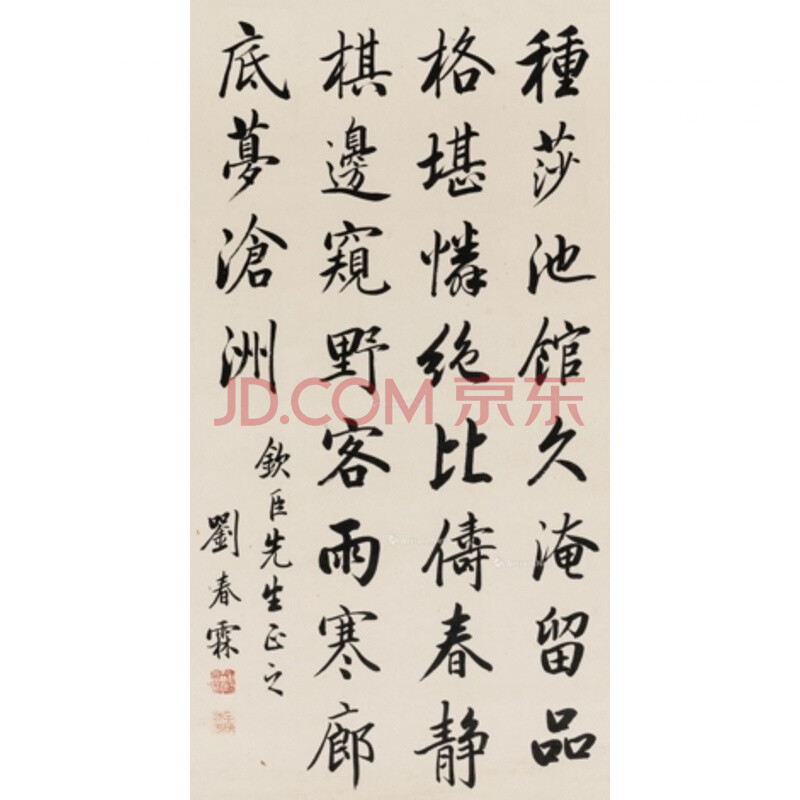 種莎池館久淹留品
格堪憐絶比儔春静
棋邊窺野客雨寒廊
底夢滄洲
欽臣先生正之
劉春霖
JD.COM 京东